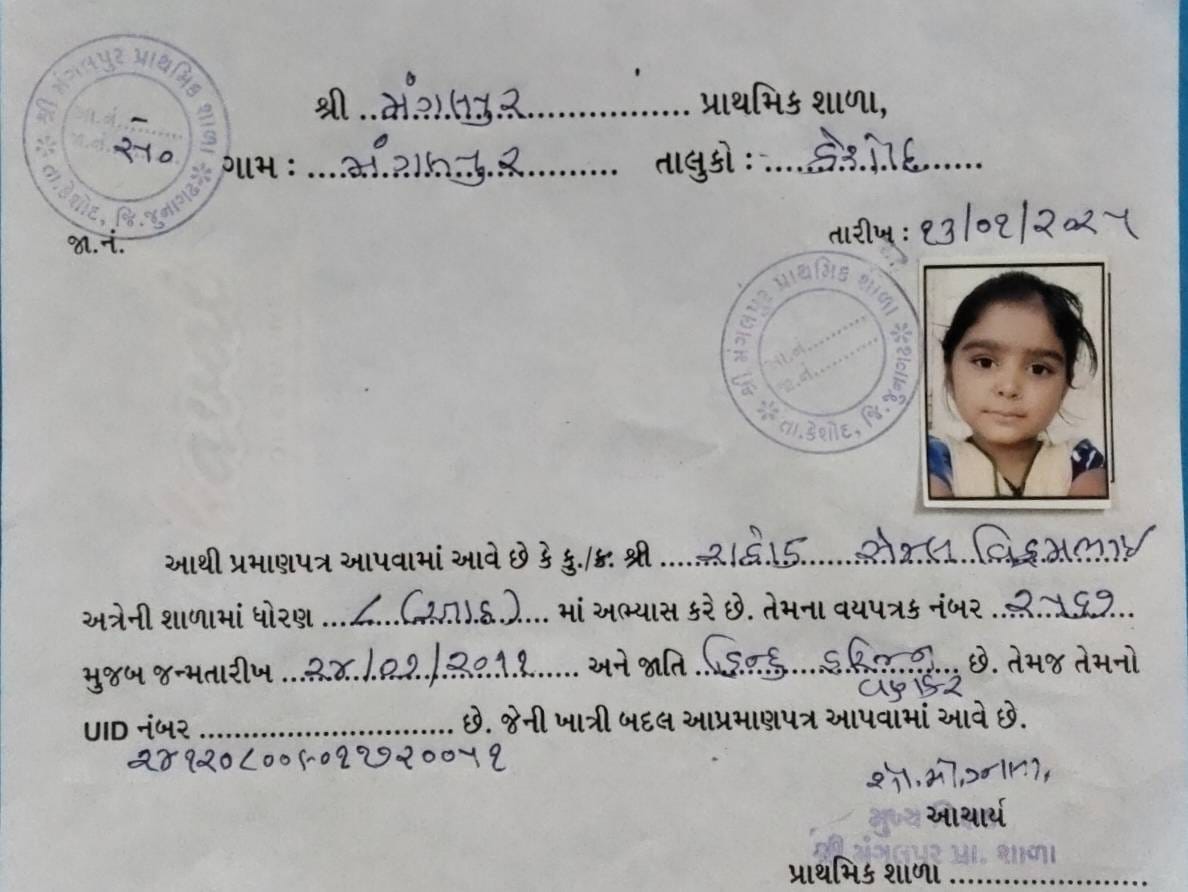 શ્રી મંગલપુર પ્રાથમિક શાળા
જા.નં. ૨૫૦
તા.કેશોદ, જિ.જુનાગઢ
શ્રી ..મંગલપુર................ પ્રાથમિક શાળા,
ગામ : ....મંગલપુર.......... તાલુકો :-....કેશોદ......
જા.નં.
તારીખ : ૧૩/૦૧/૨૦૨૫
શ્રી મંગલપુર પ્રાથમિક શાળા
આ.નં..............
જા.નં..............
તા.કેશોદ, જિ.જુનાગઢ
આથી પ્રમાણપત્ર આપવામાં આવે છે કે કુ./ક્ર. શ્રી ....રાઠોડ...... સેજલ વિક્રમભાઇ
અત્રેની શાળામાં ધોરણ ...૮..(આઠ).... માં અભ્યાસ કરે છે. તેમના વયપત્રક નંબર ..૨૫૬૭...
મુજબ જન્મતારીખ ...૨૪/૦૧/૨૦૧૧....... અને જાતિ ..હિન્દુ....હરિજન.. છે. તેમજ તેમનો
વણકર
UID નંબર ............................ છે. જેની ખાત્રી બદલ આપ્રમાણપત્ર આપવામાં આવે છે.
૨૪૧૨૦૮૦૦૬૦૧૭૨૦૦૫૧
મુખ્ય આચાર્ય
શ્રી મંગલપુર પ્રા. શાળા
પ્રાથમિક શાળા ......................